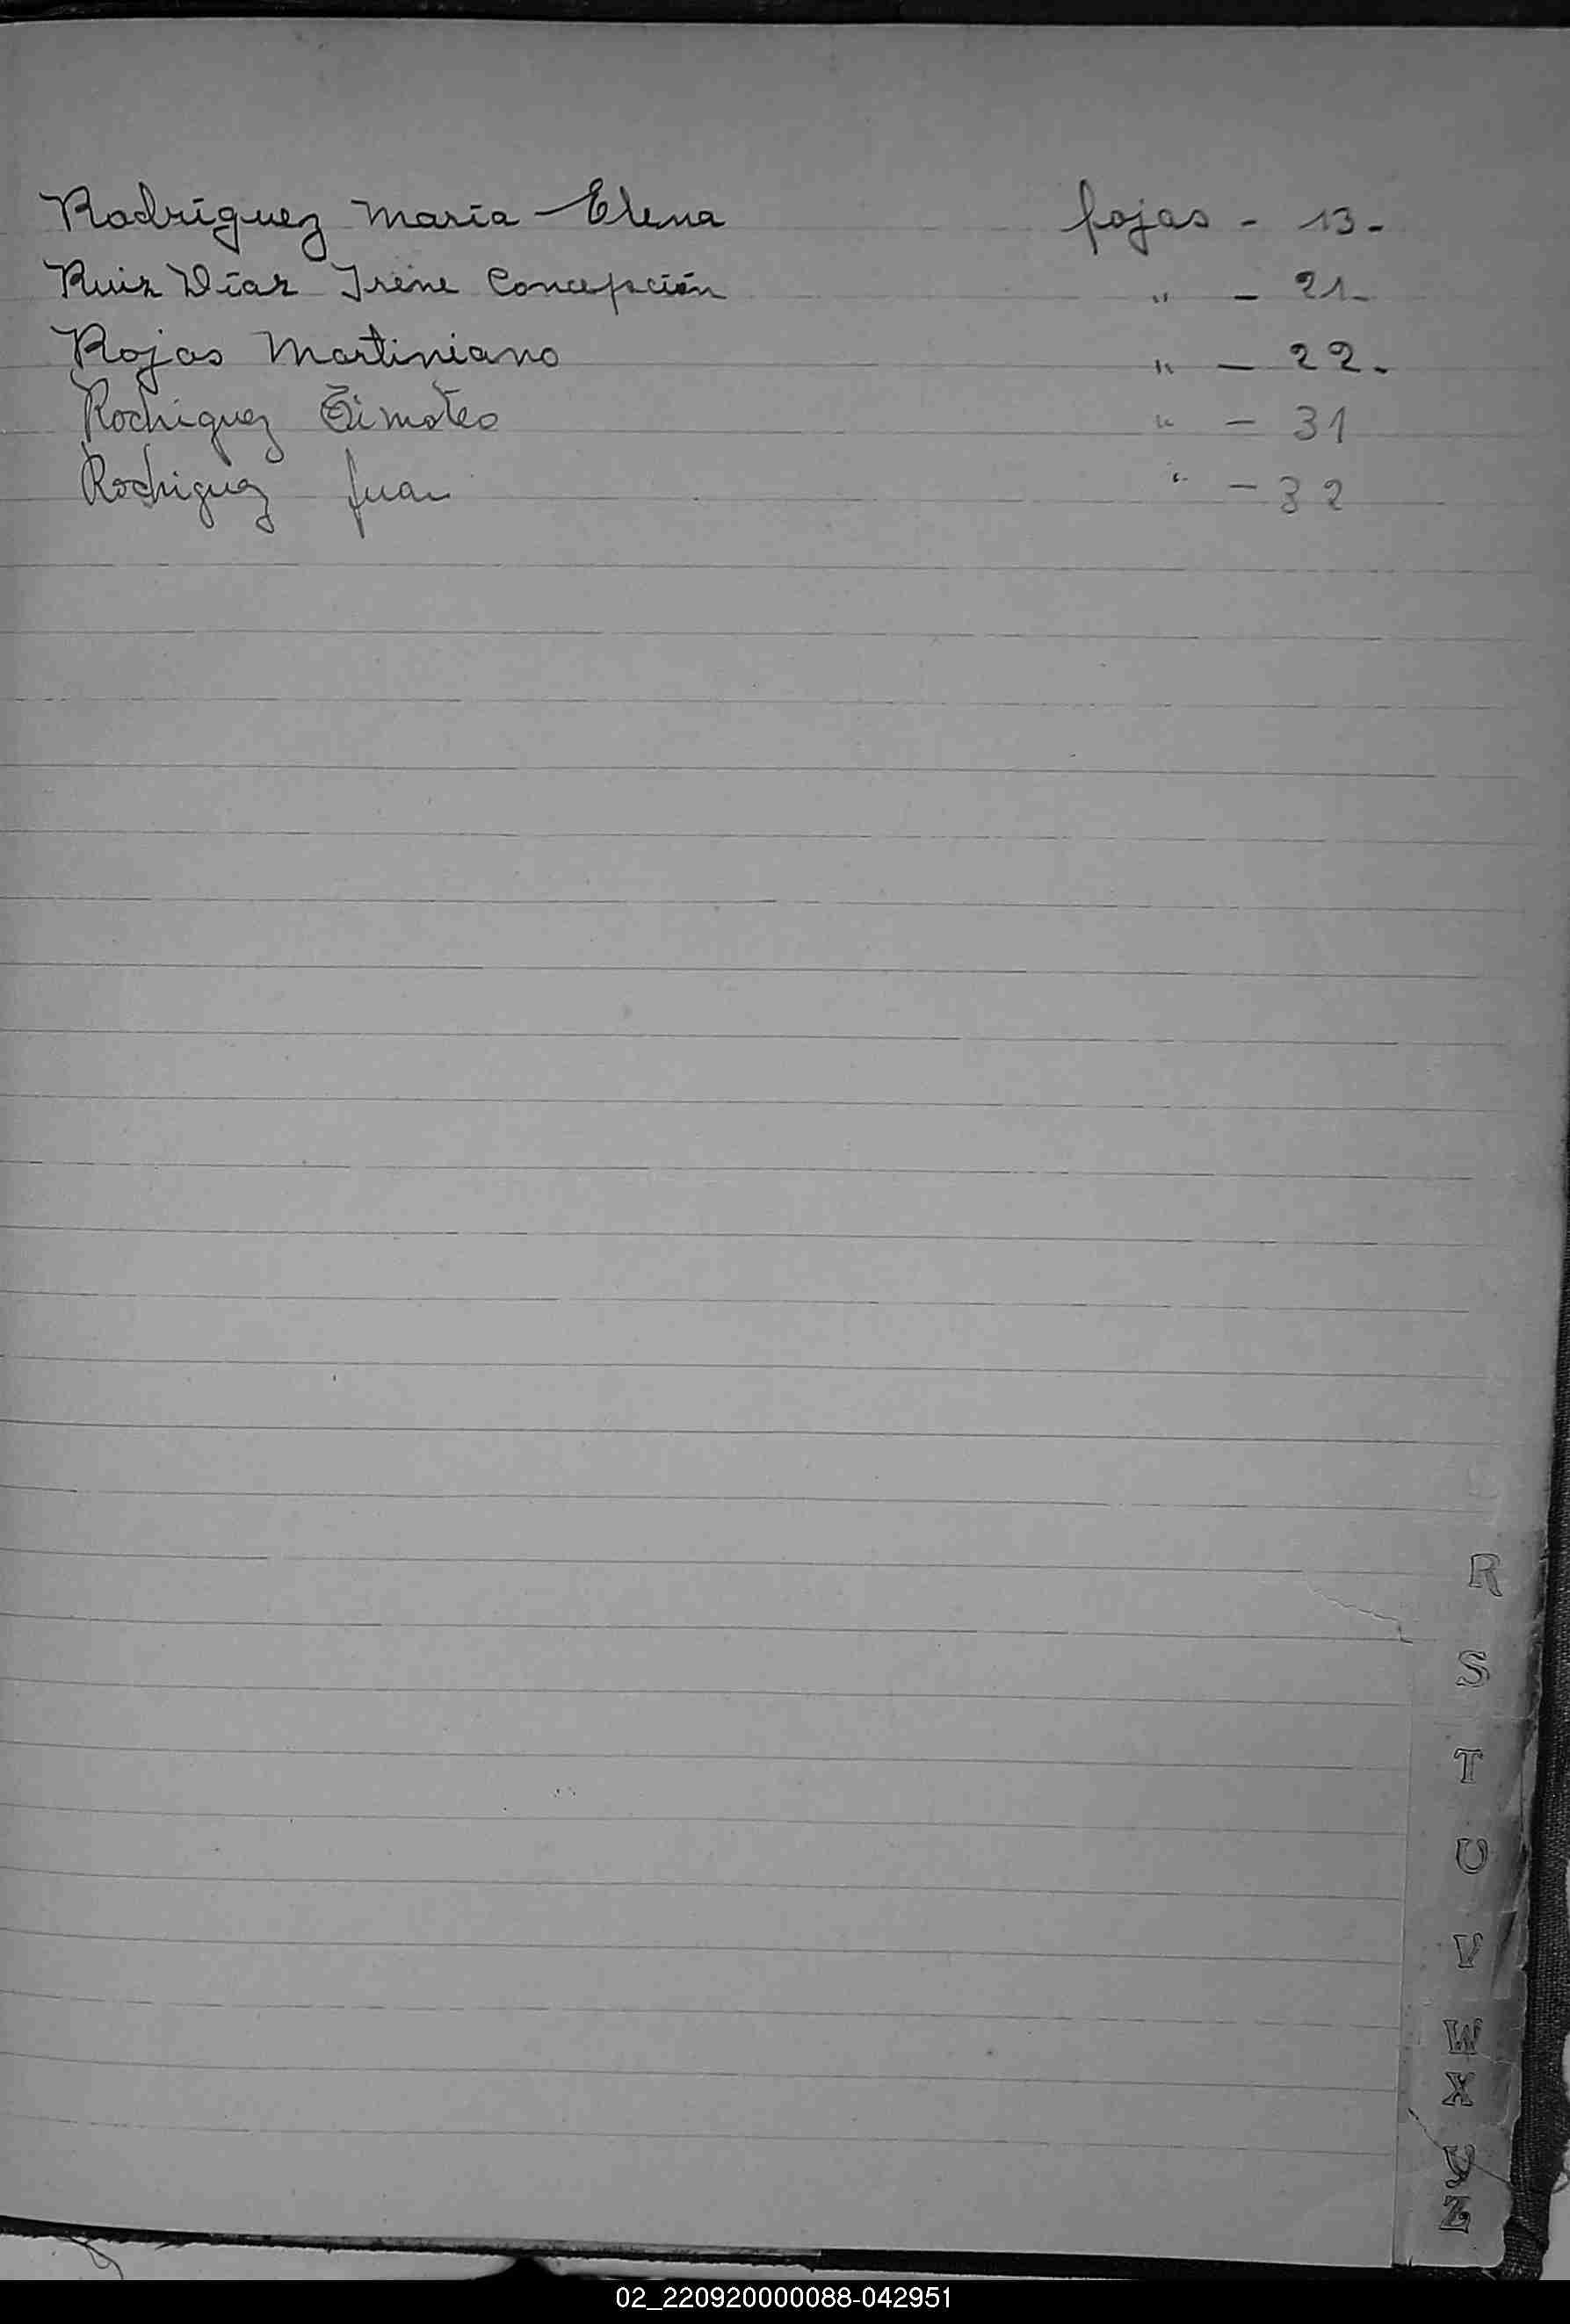 Rodríguez María Elena fojas - 13-
Ruiz Díaz Irene Concepción " - 21-
Rojas Martiniano " - 22-
Rodriguez Timoteo " - 31
Rodriguez Juan " - 32
R
S
T
U
V
W
X
Y
Z
02_220920000088-042951